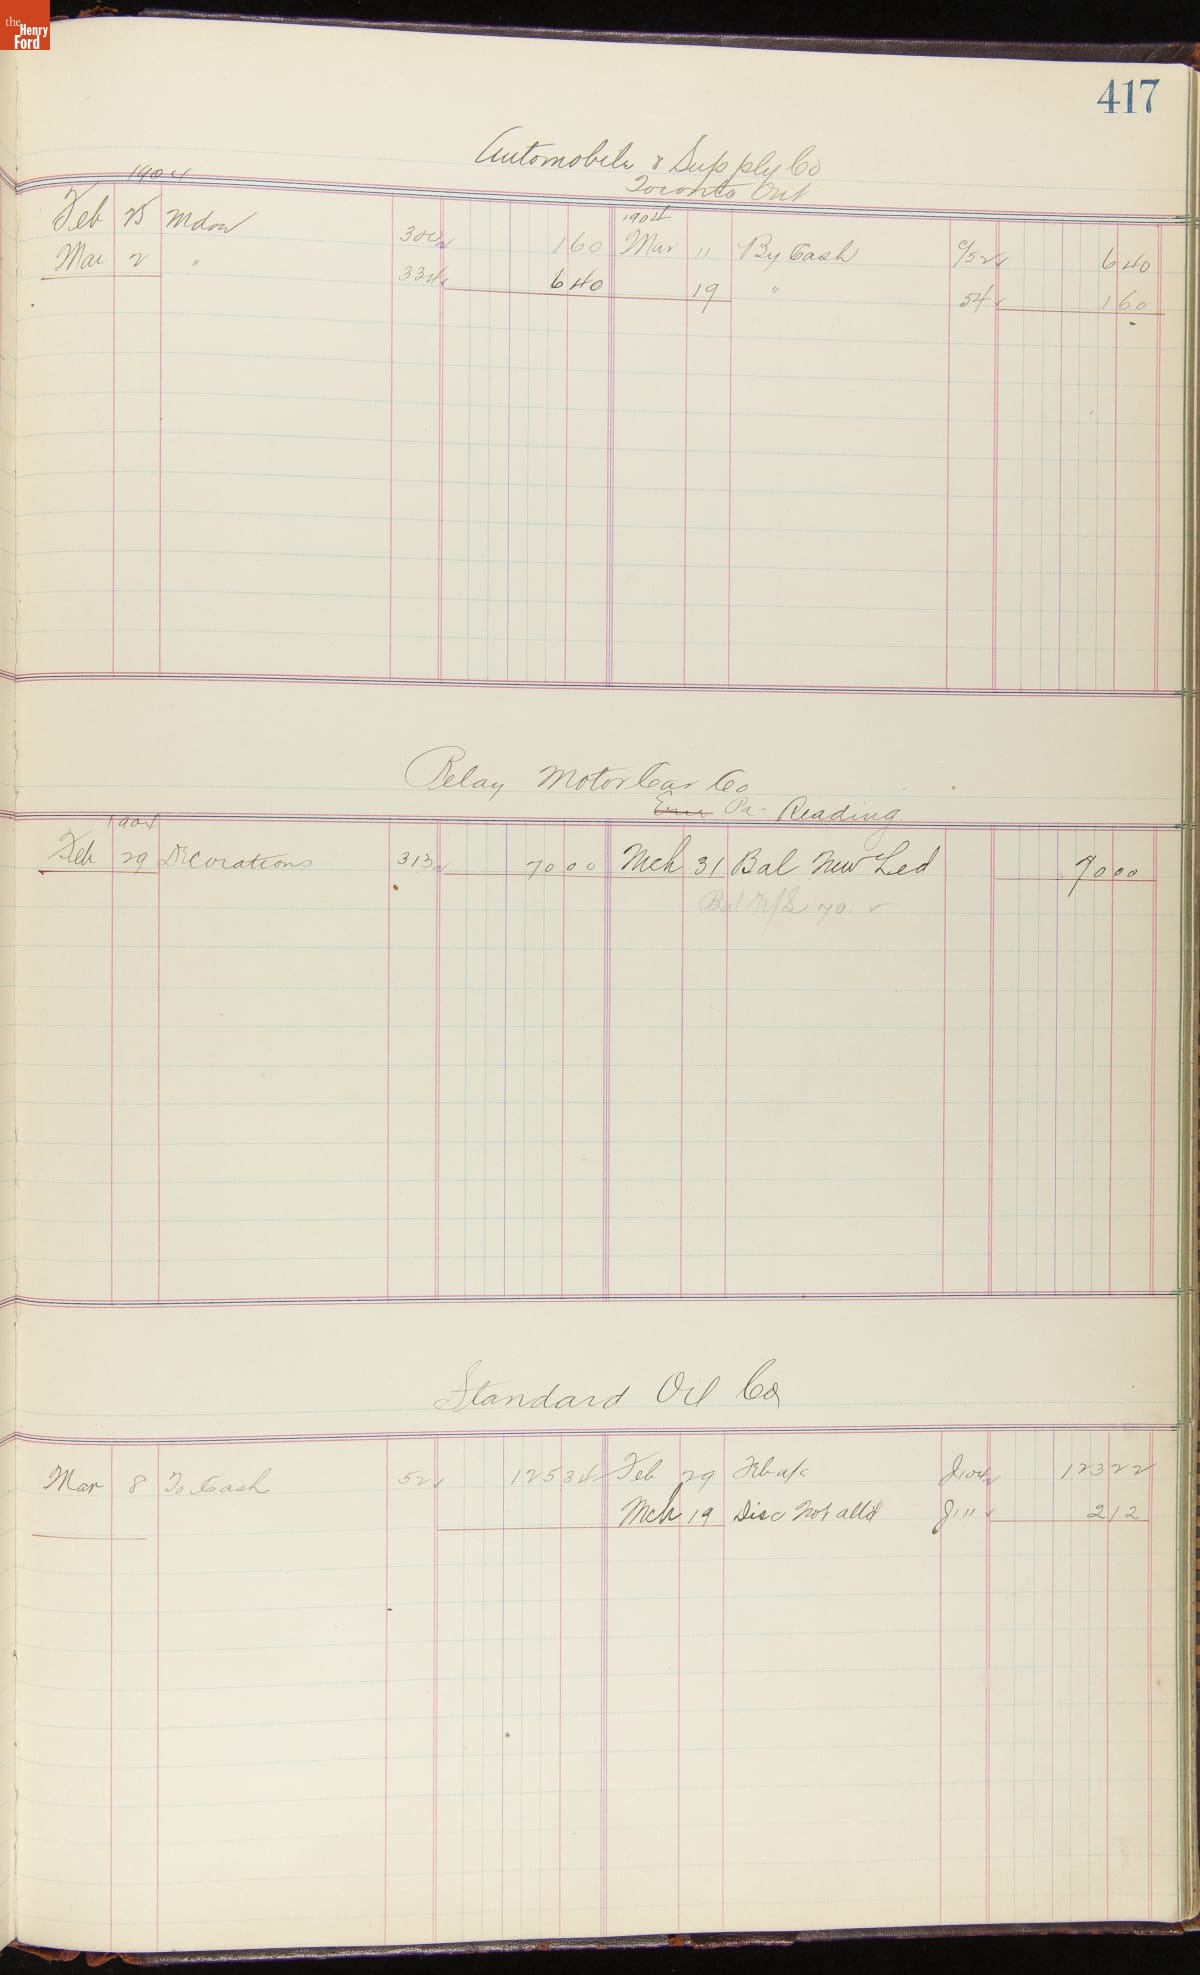 the Henry Ford
417
Automobile & Supply Co
Toronto Ont
1904
1904
Feb 25 Mdse 300 1 60 Mar 11 By Cash C/52 6 40
Mar 2 " 334 6 40 19 " 54 1 60
Relay Motor Car Co
Erie Pa - Reading
1904
Feb 29 Decorations 313 70 00 Mch 31 Bal New Led 70 00
Bal N/L 70.
Standard Oil Co
Mar 8 To Cash 52 125 34 Feb 29 Feb a/c J104 123 22
Mch 19 Disc Not all'd J111 2 12